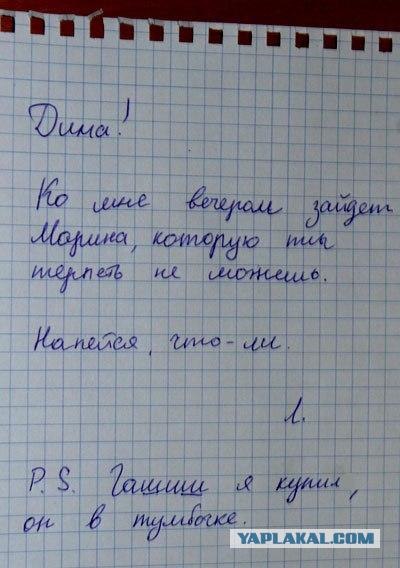 Дима!
Ко мне вечером зайдет
Марина, которую ты
терпеть не можешь.
Напейся, что-ли.
Л.
P.S. Гашиш я купил,
он в тумбочке.
YAPLAKAL.COM